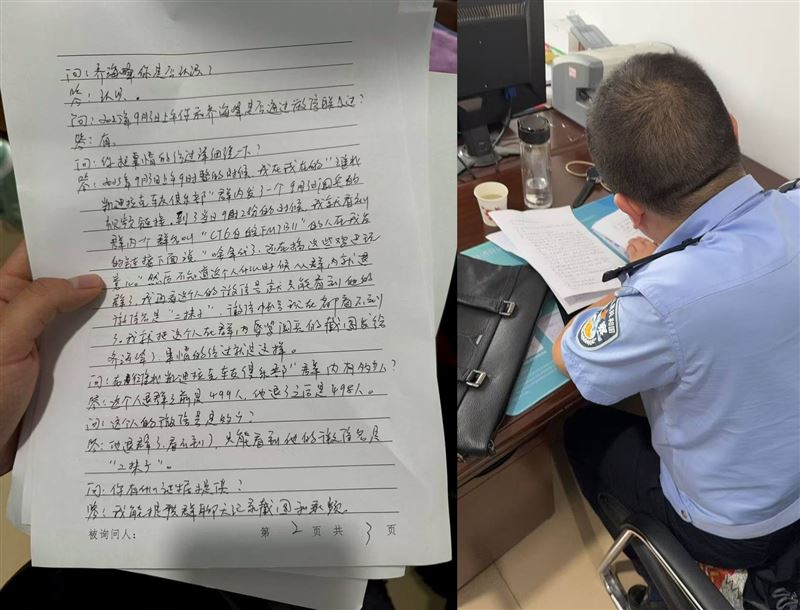 问：齐海峰你是否认识？
答：认识。
问：2025年9月3日上午你和齐海峰是否通过微信联系过？
答：有。
问：你把事情的经过详细说一下？
答：2025年9月3日上午9时整的时候，我在我在的“潍机
凯迪拉克车友俱乐部”群内发了一个9月3日阅兵的
视频链接，到了当日9时2分的时候，我就看到
群内一个群名叫“CT6白的FMJB11”的人在我发
的链接下面说“啥年代了，还在搞这些
意义”然后不知道这个人什么时候从群内就退
群了，我再看这个人的微信号就只能看到他的
微信名是“二抹子”，微信帐号现在都看不到
了。我就把这个人在群内
齐海峰了，事情的经过就是这样。
问：凯迪拉克车友俱乐部”群内有多少人？
答：这个人退群之前是499人，他退了之后是498人。
问：这个人的微信号是多少？
答：他退群了，看不到，只能看到他的微信名是
“二抹子”。
问：你有什么证据提供？
答：我能提供群聊天记录截图和录频。
被询问人： 第 2 页 共 3 页